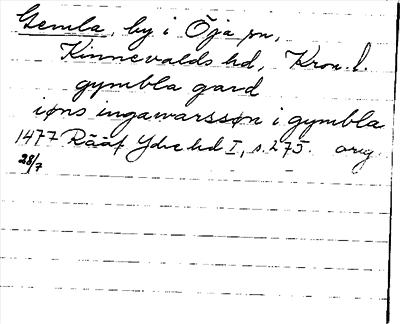 Gemla, by i Öja sn,
Kinnevalds hd, Kron. l.
gymbla gard
iøns ingawarssøn i gymbla
1477 Rääf Ydre hd I, s. 275. orig
28/7